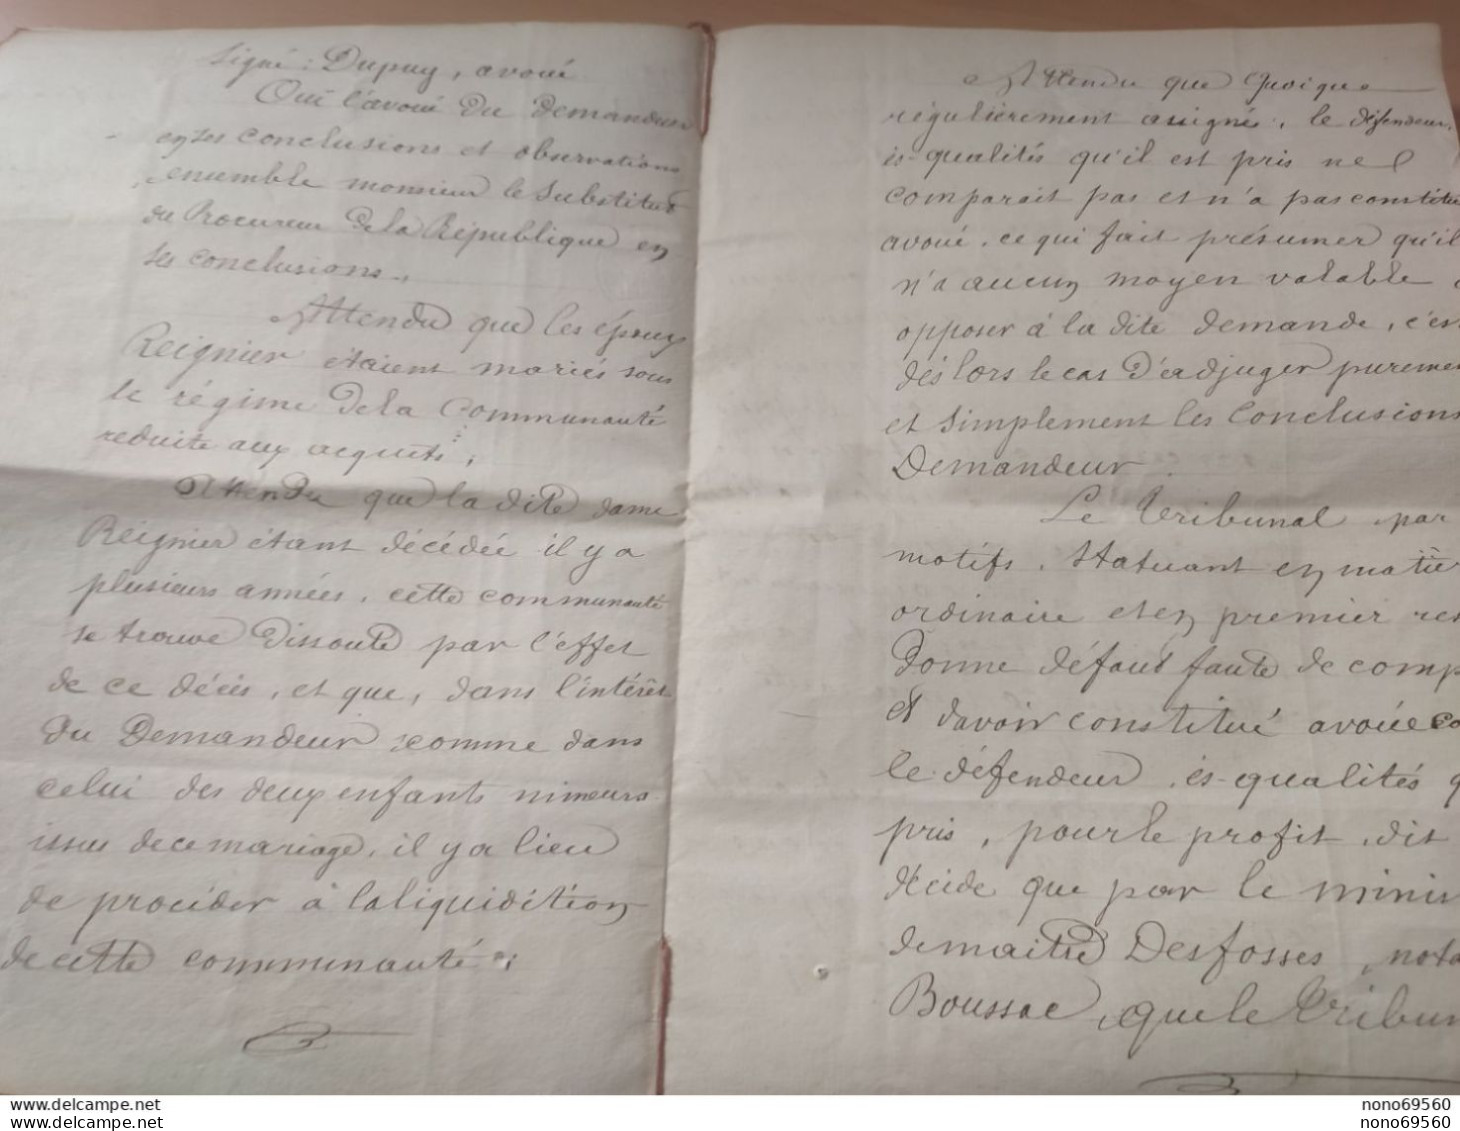 Signé : Dupuy, avoué
Ouï l'avoué du demandeur
en ses conclusions et observations
ensemble monsieur le Substitut
du Procureur de la République en
ses conclusions.
Attendu que les époux
Reignier étaient mariés sous
le régime de la Communauté
reduite aux acquêts ;
Attendu que la dite dame
Reignier étant décédée il y a
plusieurs années, cette communauté
se trouve dissoute par l'effet
de ce décès, et que, dans l'intérêt
du Demandeur comme dans
celui des deux enfants mineurs
issus de ce mariage, il y a lieu
de procéder à la liquidation
de cette communauté ;
Attendu que quoique
régulièrement assigné, le défendeur
ès-qualités qu'il est pris ne
comparait pas et n'a pas constitué
avoué, ce qui fait présumer qu'il
n'a aucun moyen valable
opposer à la dite demande, c'est
dès lors le cas d'adjuger purement
et simplement les Conclusions
Demandeur.
Le Tribunal par
motifs, Statuant en matiè
ordinaire et en premier res
Donne défaut faute de comp
et d'avoir constitué avoué co
le défendeur, ès-qualités q
pris, pour le profit, dit
décide que par le minis
de maître Desfosses, nota
Boussac, que le Tribun
www.delcampe.net nono69560
www.delcampe.net nono69560